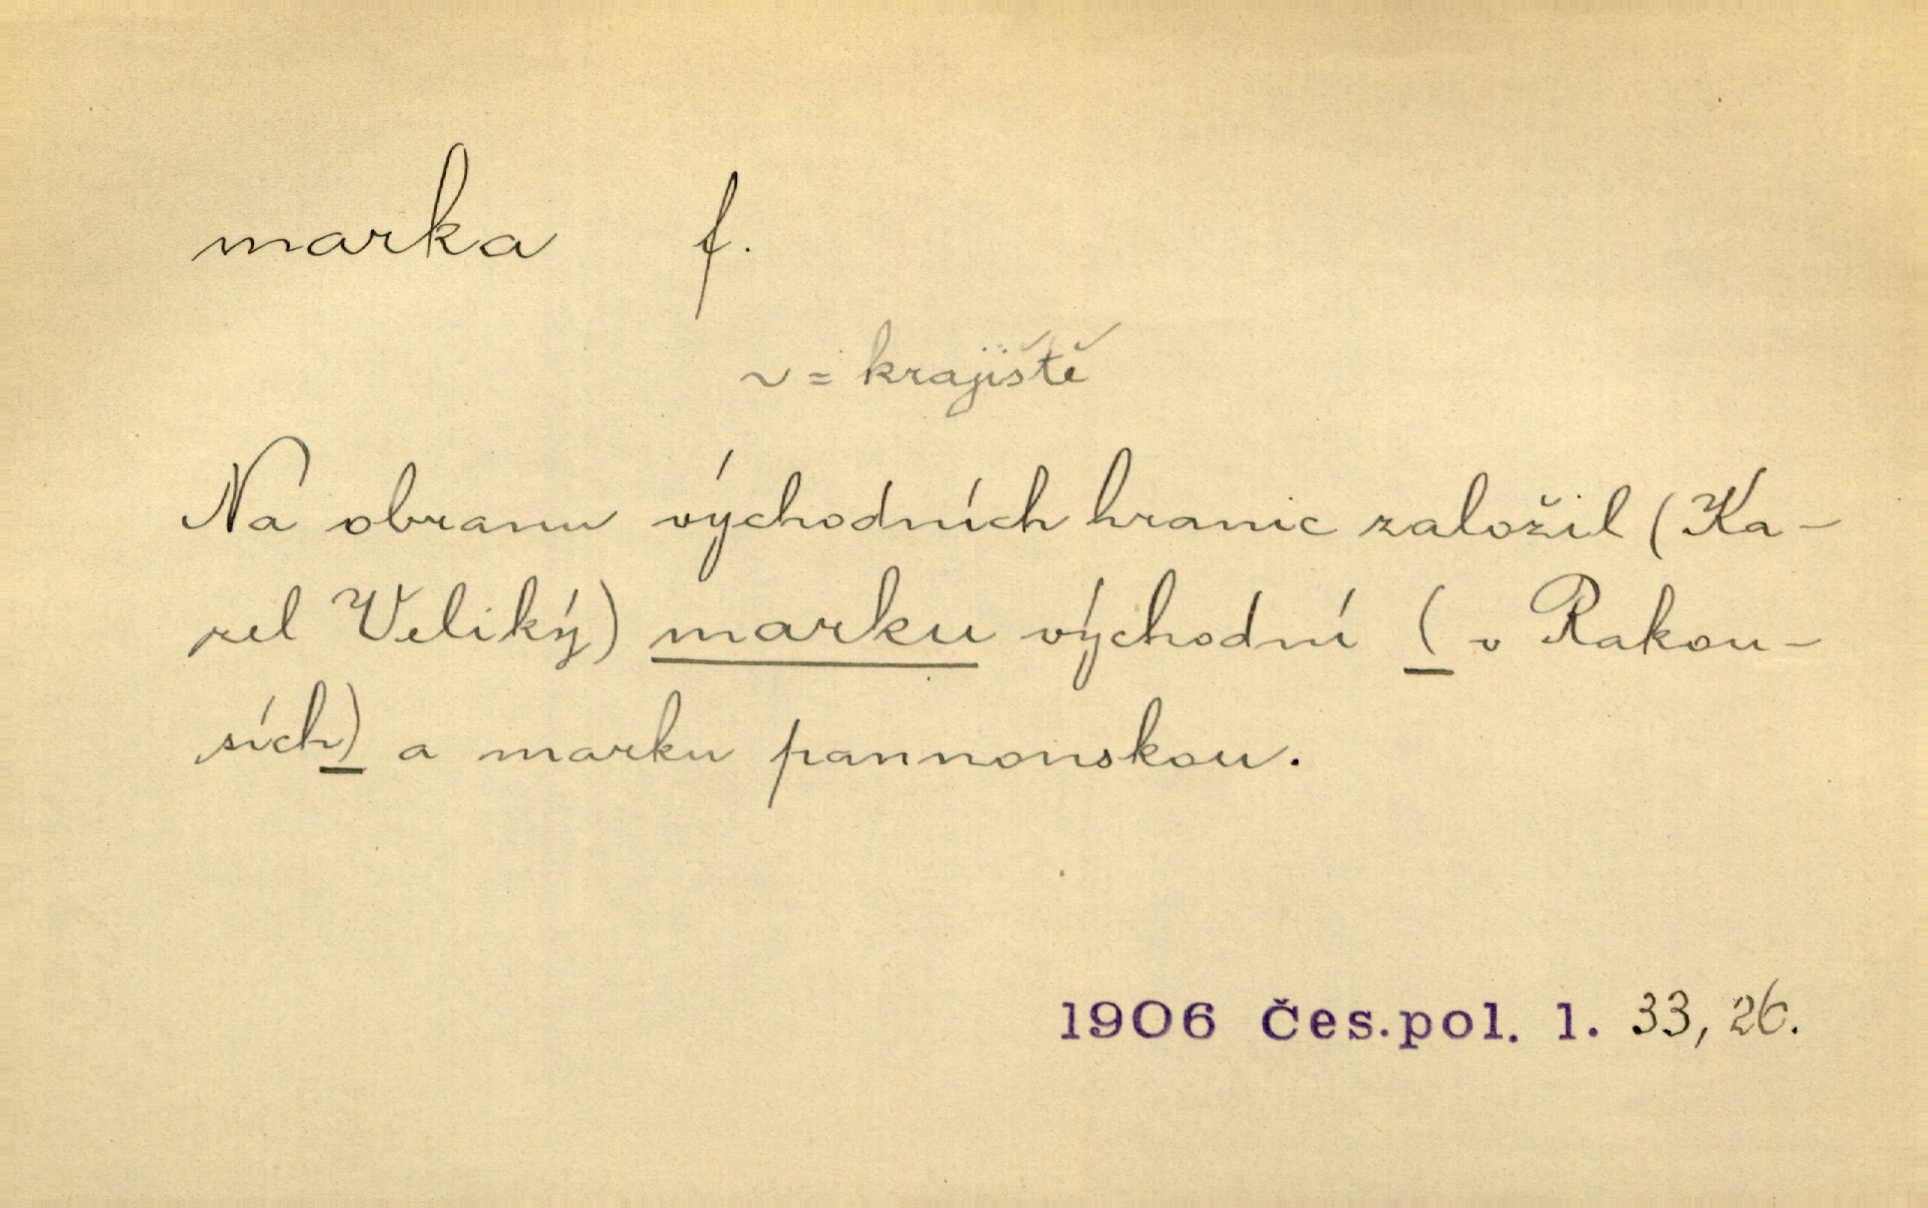 marka f.
~ = krajiště
Na obranu východních hranic založil (Ka-
rel Veliký) marku východní (v Rakou-
sích) a marku pannonskou.
1906 Čes.pol. l. 33, 26.